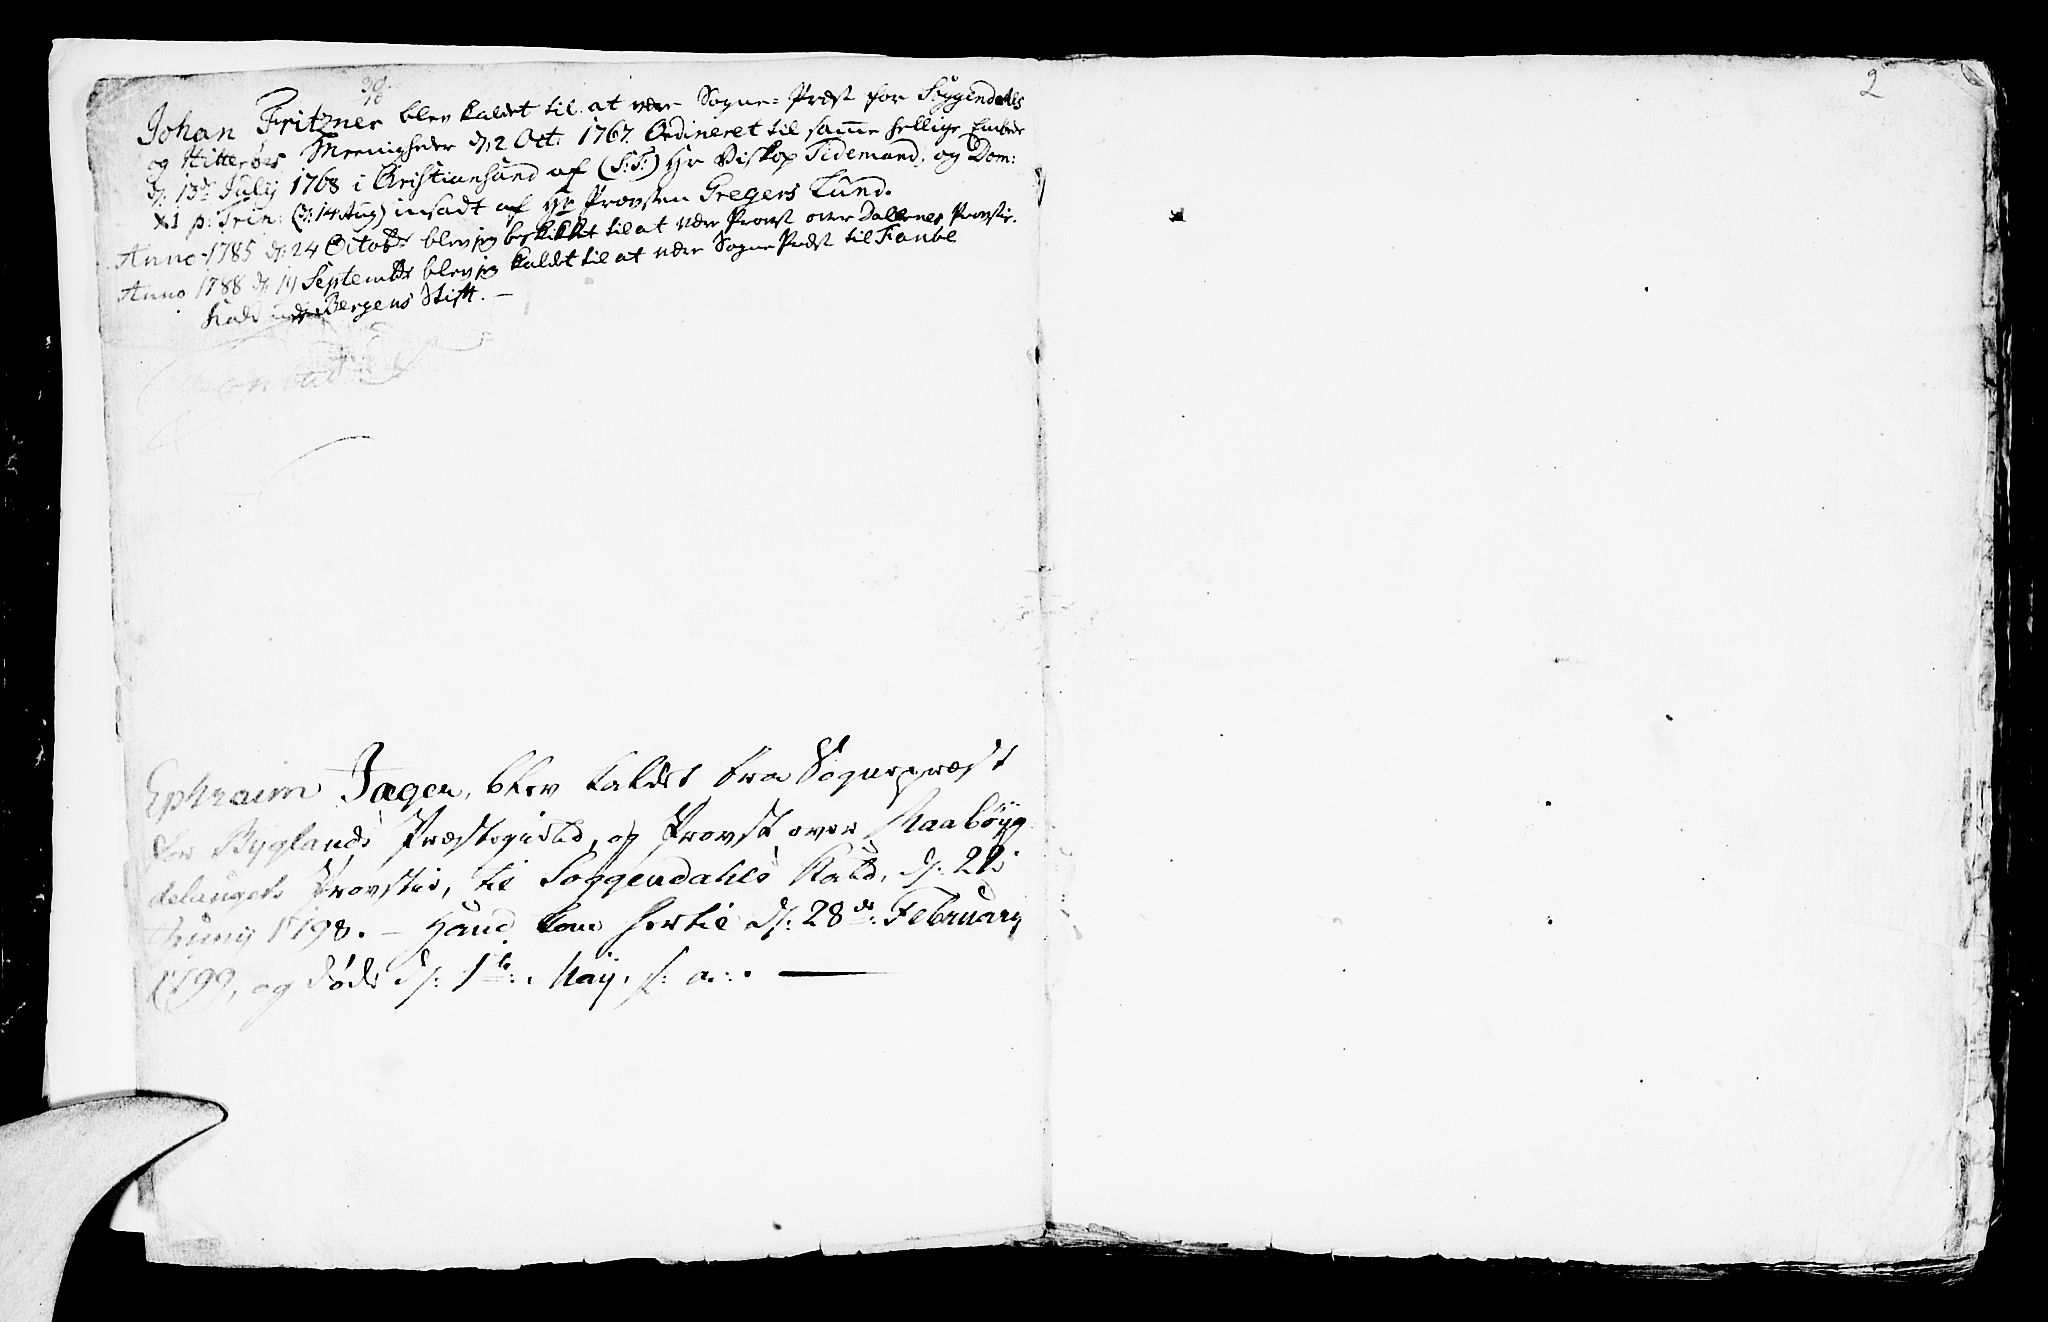 Johan Fritzner blev kaldet til at være Sogne-Præst for Soggendahls
og Hitterøes Meenigheder d. 2 Oct: 1767. Ordineret til samme hellige Embede
d. 13de Julij 1768 i Christiansand af (S: T:) Hr Biskop Tidemand, og Dom:
XI p: Trin: (d: 14 Aug) insadt af Hr Provsten Gregers Lund.
Anno 1785 d: 24 Octobr blev jeg beskikket til at være Provst over Dallernes Provstie.
Anno 1788 d. 19 Septembr blev jeg kaldet til at være Sogne Præst til Fanøe
Kald under Bergens Stift. —
Ephraim Jæger, blev kaldet fra Sognepræst
for Byglands Præstegield, og Provst over Raabøyg
delaugets Provstie, til Soggendahls Kald, d. 22
Junij 1798. — Hand kom hertil d: 28de: February
1799, og døde d: 1te: Maij. s: a: . —
2